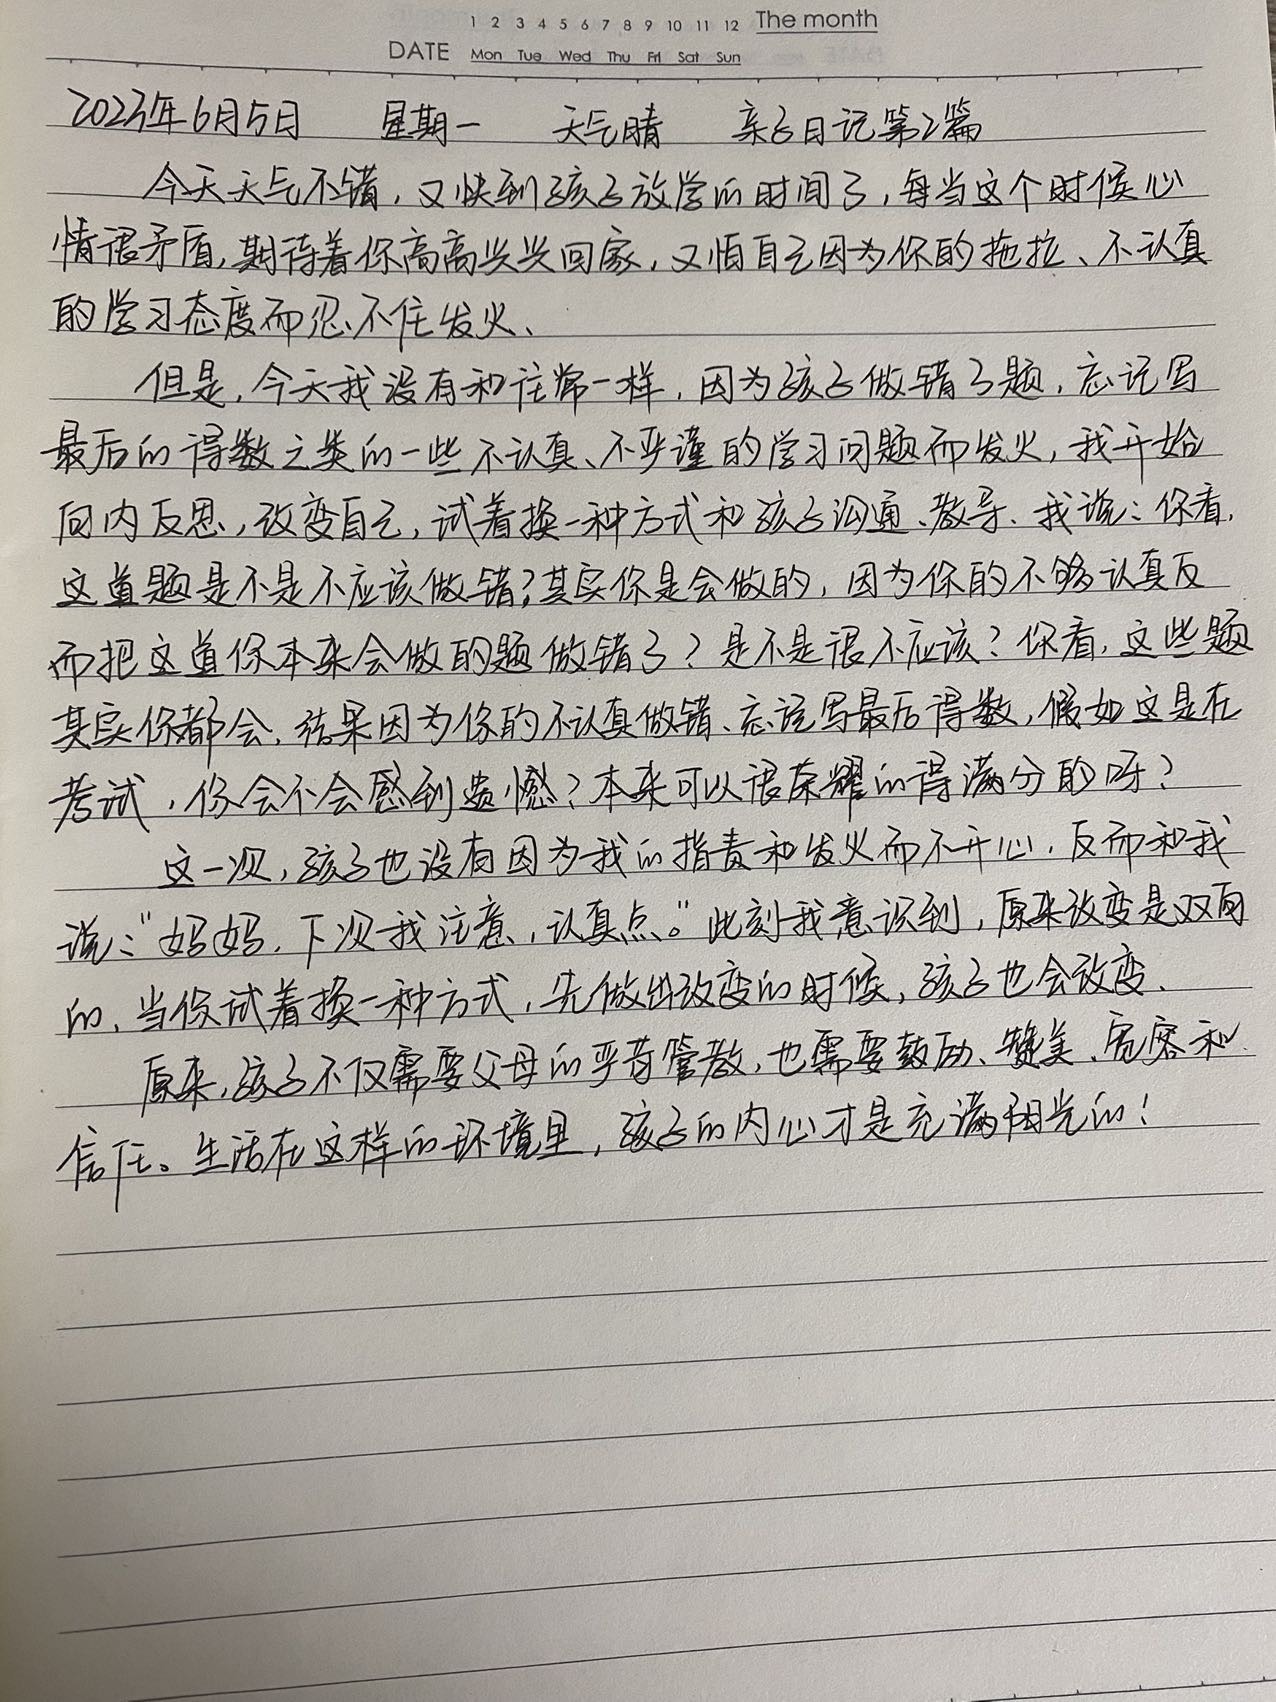 1 2 3 4 5 6 7 8 9 10 11 12 The month
DATE Mon Tue Wed Thu Fri Sat Sun
2023年6月5日 星期一 天气晴 亲子日记第2篇
今天天气不错,又快到孩子放学的时间了,每当这个时候心
情很矛盾,期待着你高高兴兴回家,又怕自己因为你的拖拉、不认真
的学习态度而忍不住发火、
但是,今天我没有和往常一样,因为孩子做错了题,忘记写
最后的得数之类的一些不认真、不严谨的学习问题而发火,我开始
向内反思,改变自己,试着换一种方式和孩子沟通、教导、我说:你看,
这道题是不是不应该做错?其实你是会做的,因为你的不够认真反
而把这道你本来会做的题做错了?是不是很不应该?你看,这些题
其实你都会,结果因为你的不认真做错、忘记写最后得数,假如这是在
考试,你会不会感到遗憾?本来可以很荣耀的得满分的呀?
这一次,孩子也没有因为我的指责和发火而不开心,反而和我
说:“妈妈,下次我注意,认真点。”此刻我意识到,原来改变是双向
的,当你试着换一种方式,先做出改变的时候,孩子也会改变、
原来,孩子不仅需要父母的严苛管教,也需要鼓励、赞美、宽容和
信任。生活在这样的环境里,孩子的内心才是充满阳光的!